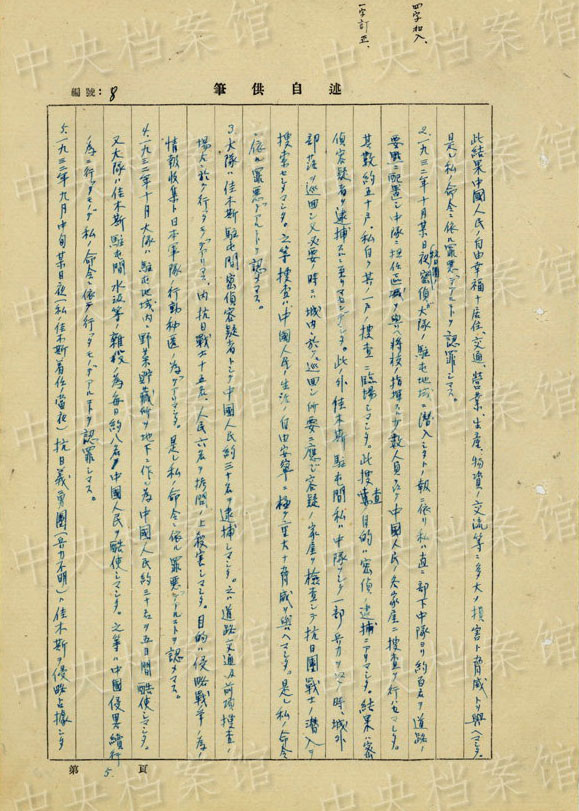 四字加入、
一字訂正、
編號：8
筆供自述
此結果中國人民ノ自由幸福ナ居住、交通、營業、生產、物資ノ交流等ニ多大ノ損害ト脅威トヲ與ヘマシタ。
是レ私ノ命令ニ依ル罪惡デアルコトヲ認罪シマス。
2.一九三二年十月某日夜密偵ガ大隊ノ駐屯地域ニ潛入シタトノ報ニ依リ私ハ直ニ部下中隊ヨリ約百名ヲ道路ノ
要點ニ配置シ中隊ニ担任區域ヲ與ヘ將校ノ指揮スル少數人員ヲ以テ中國人民ノ各家屋ニ搜查ヲ行ハセマシタ。
其數約五十戶、私自ラ其一戶ノ搜查ニ臨場シマシタ。此搜查ノ目的ハ密偵ノ逮捕ニアリマシタ。結果ハ密
偵容疑者ヲ逮捕スルニ至リマセンデシタ。此ノ外佳木斯駐屯間私ハ中隊ヲシテ一部ノ兵力ヲ以テ時々城外
部落ヲ巡回シ又必要ノ時ニハ城內ニ於テモ巡回シ所要ニ應ジ容疑ノ家屋ヲ檢查シテ抗日團戰士ノ潛入ヲ
搜索セシメマシタ。之等搜查ハ中國人民ノ生活ノ自由安寧ニ極メテ重大ナ脅威ヲ與ヘマシタ。是レ私ノ命令
ニ依ル罪惡デアルコトヲ認メマス。
3.大隊ハ佳木斯駐屯間密偵容疑者トシテ中國人民約三十名ヲ逮捕シマシタ。之ハ道路交通及前項搜查ノ
場合ニ於テ行ッタモノデアリマス。內抗日戰士十五名、人民六名ヲ拷問ノ上殺害シマシタ。目的ハ侵略戰爭ノ為ノ
情報收集ト日本軍隊ノ行動秘匿ノ為デアリマシタ。是レ私ノ命令ニ依ル罪惡デアルコトヲ認メマス。
4.一九三二年十月大隊ハ駐屯地域內ノ野菜貯藏所ヲ地下ニ作ル為中國人民約三十名ヲ五日間酷使シマシタ。
又大隊ハ佳木斯駐屯間水汲等ノ雜役ノ為每日約八名ノ中國人民ヲ酷使シマシタ。之等ハ中國侵略續行
ノ為ニ行ッタモノデ私ノ命令ニ依テ行ッタモノデアルコトヲ認罪シマス。
5.一九三二年九月中旬某日夜（私ノ佳木斯着任ノ當夜）抗日義勇團（兵力不明）ハ佳木斯ヲ侵略占據シタ
第5.頁
中央档案馆